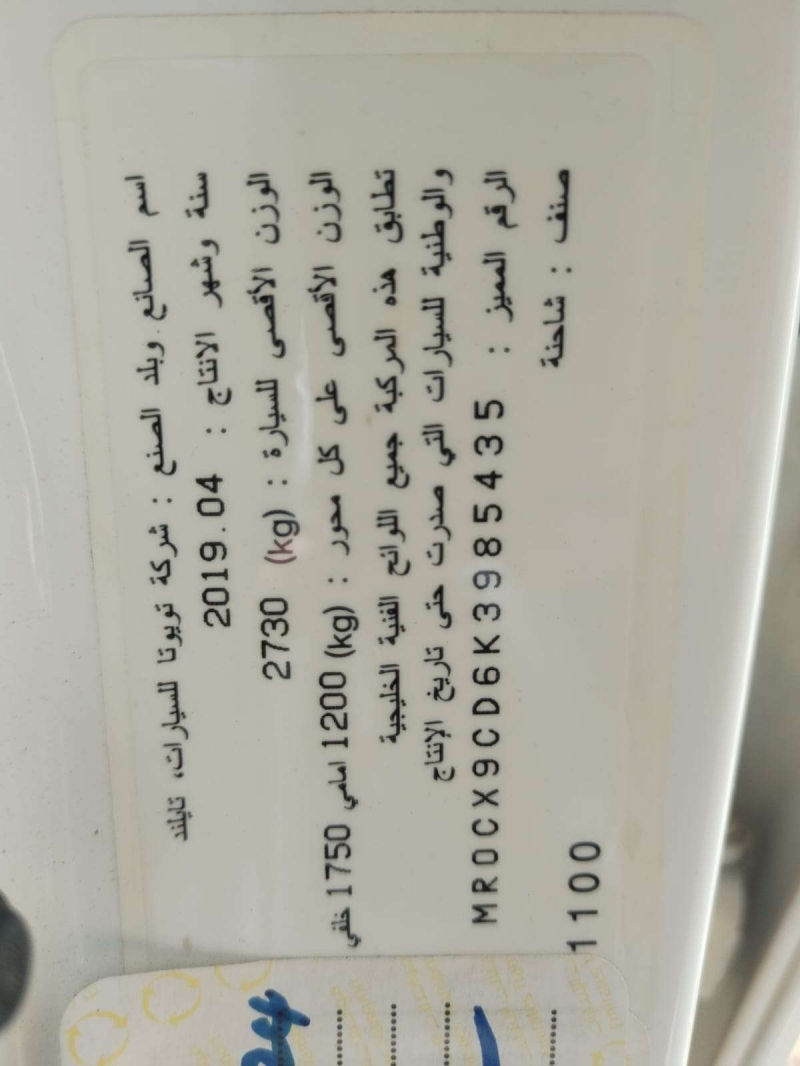 اسم الصانع وبلد الصنع : شركة تويوتا للسيارات، تايلند
سنة وشهر الانتاج : 2019.04
الوزن الأقصى للسيارة : (kg) 2730
الوزن الأقصى على كل محور : (kg) 1200 امامي 1750 خلفي
تطابق هذه المركبة جميع اللوائح الفنية الخليجية
والوطنية للسيارات التي صدرت حتى تاريخ الإنتاج
الرقم المميز : MR0CX9CD6K3985435
صنف : شاحنة
1100